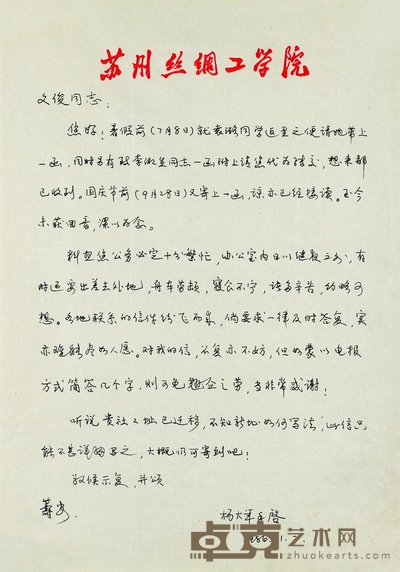 苏州丝绸工学院
文俊同志：
您好！暑假前（7月8日）就袁敏同学返里之便请她带上
一函，同时另有致李淑兰同志一函附上请您代为转交，想来都
已收到。国庆节前（9月28日）又寄上一函，谅亦已经接读。至今
未获回音，深以为念。
料想您公务必定十分繁忙，办公室内日以继夜之外，有
时还要出差去外地，舟车劳顿，寝食不宁，诸多辛苦，约略可
想。各地联系的信件纷飞而来，倘要求一律及时答复，实
亦难能尽如人愿。对我的信，不复亦不妨，但如蒙以电报
方式简答几个字，则可免翘企之劳，当非常感谢！
听说贵社社址已迁移，不知新址如何写法，此信只
能不甚详细书之，大概仍可寄到吧！
敬候示复，并颂
筹安
杨大年手启
卓克艺术网
zhuokearts.com